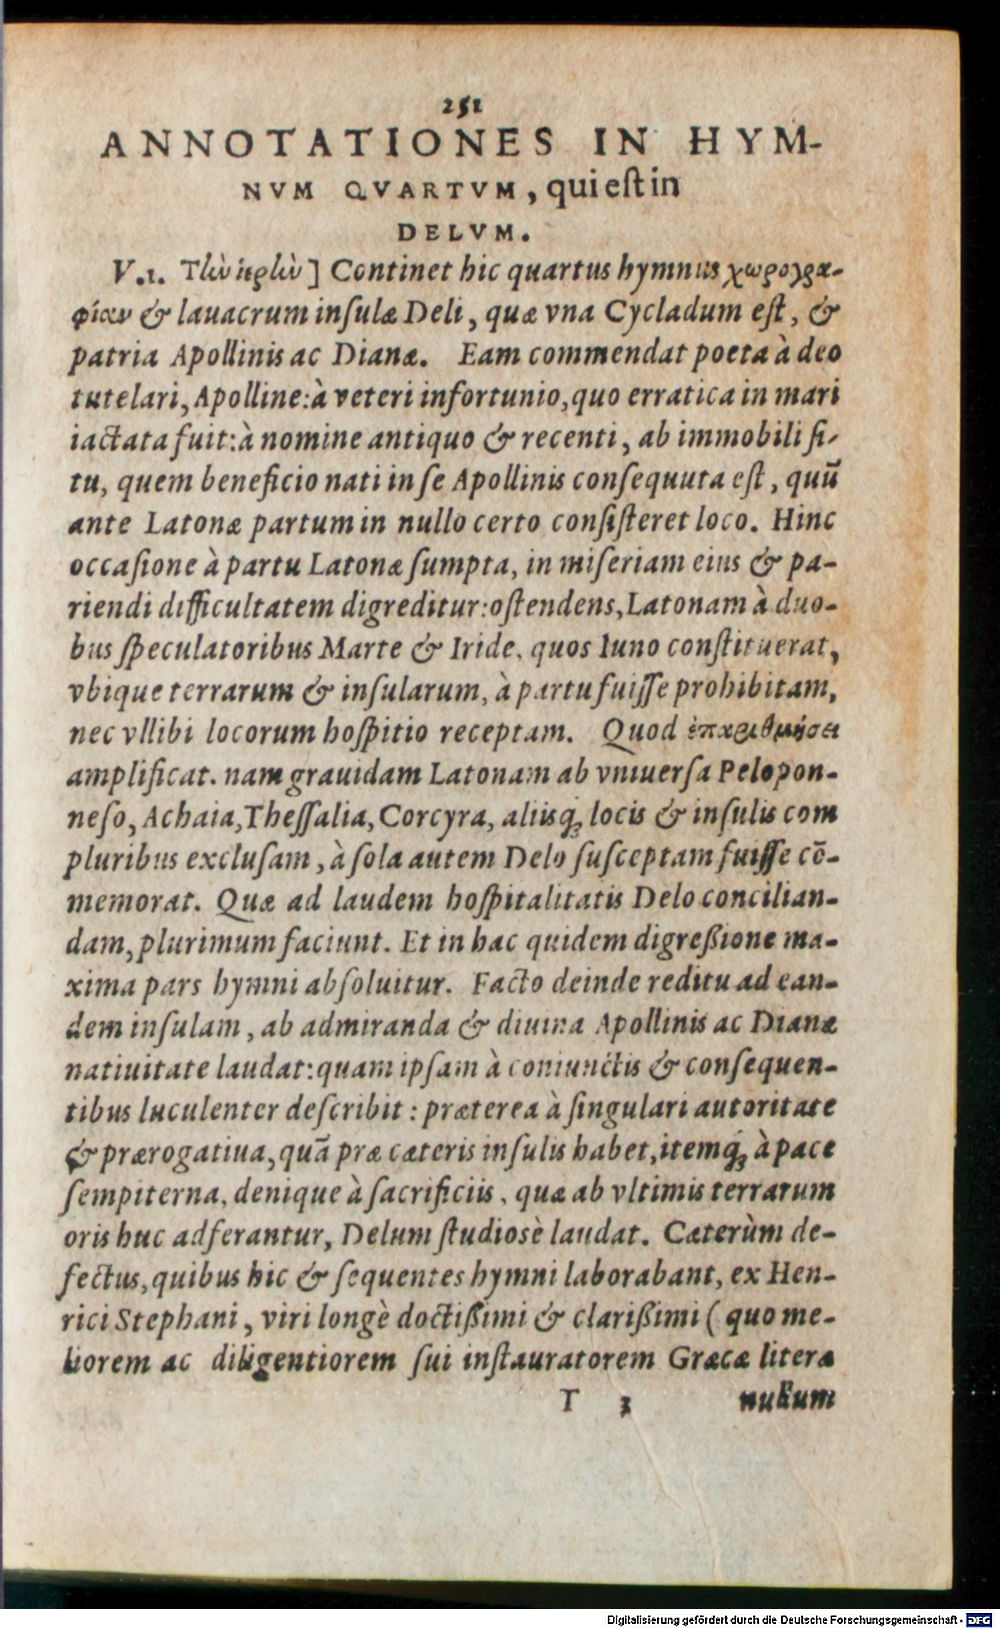 251
ANNOTATIONES IN HYM-
NVM QVARTVM, qui est in
DELVM.
V.1. Τὼ ἱερὼ] Continet hic quartus hymnus χωρογρα-
φίαν & lauacrum insulæ Deli, quæ vna Cycladum est, &
patria Apollinis ac Dianæ. Eam commendat poeta à deo
tutelari, Apolline: à veteri infortunio, quo erratica in mari
iactata fuit: à nomine antiquo & recenti, ab immobili si-
tu, quem beneficio nati in se Apollinis consequuta est, quũ
ante Latonæ partum in nullo certo consisteret loco. Hinc
occasione à partu Latonæ sumpta, in miseriam eius & pa-
riendi difficultatem digreditur: ostendens, Latonam à duo-
bus speculatoribus Marte & Iride, quos Iuno constituerat,
vbique terrarum & insularum, à partu fuisse prohibitam,
nec vllibi locorum hospitio receptam. Quod ἐπαριθμήσει
amplificat. nam grauidam Latonam ab vniuersa Pelopon-
neso, Achaia, Thessalia, Corcyra, aliisq; locis & insulis com
pluribus exclusam, à sola autem Delo susceptam fuisse cō-
memorat. Quæ ad laudem hospitalitatis Delo concilian-
dam, plurimum faciunt. Et in hac quidem digreßione ma-
xima pars hymni absoluitur. Facto deinde reditu ad ean-
dem insulam, ab admiranda & diuina Apollinis ac Dianæ
natiuitate laudat: quam ipsam à coniunctis & consequen-
tibus luculenter describit: præterea à singulari autoritate
& prærogatiua, quã præ cæteris insulis habet, itemq; à pace
sempiterna, denique à sacrificiis, quæ ab vltimis terrarum
oris huc adferantur, Delum studiosè laudat. Cæterùm de-
fectus, quibus hic & sequentes hymni laborabant, ex Hen-
rici Stephani, viri longè doctißimi & clarißimi ( quo me-
liorem ac diligentiorem sui instauratorem Græcæ literæ
T 3 nullum
Digitalisierung gefördert durch die Deutsche Forschungsgemeinschaft - DFG